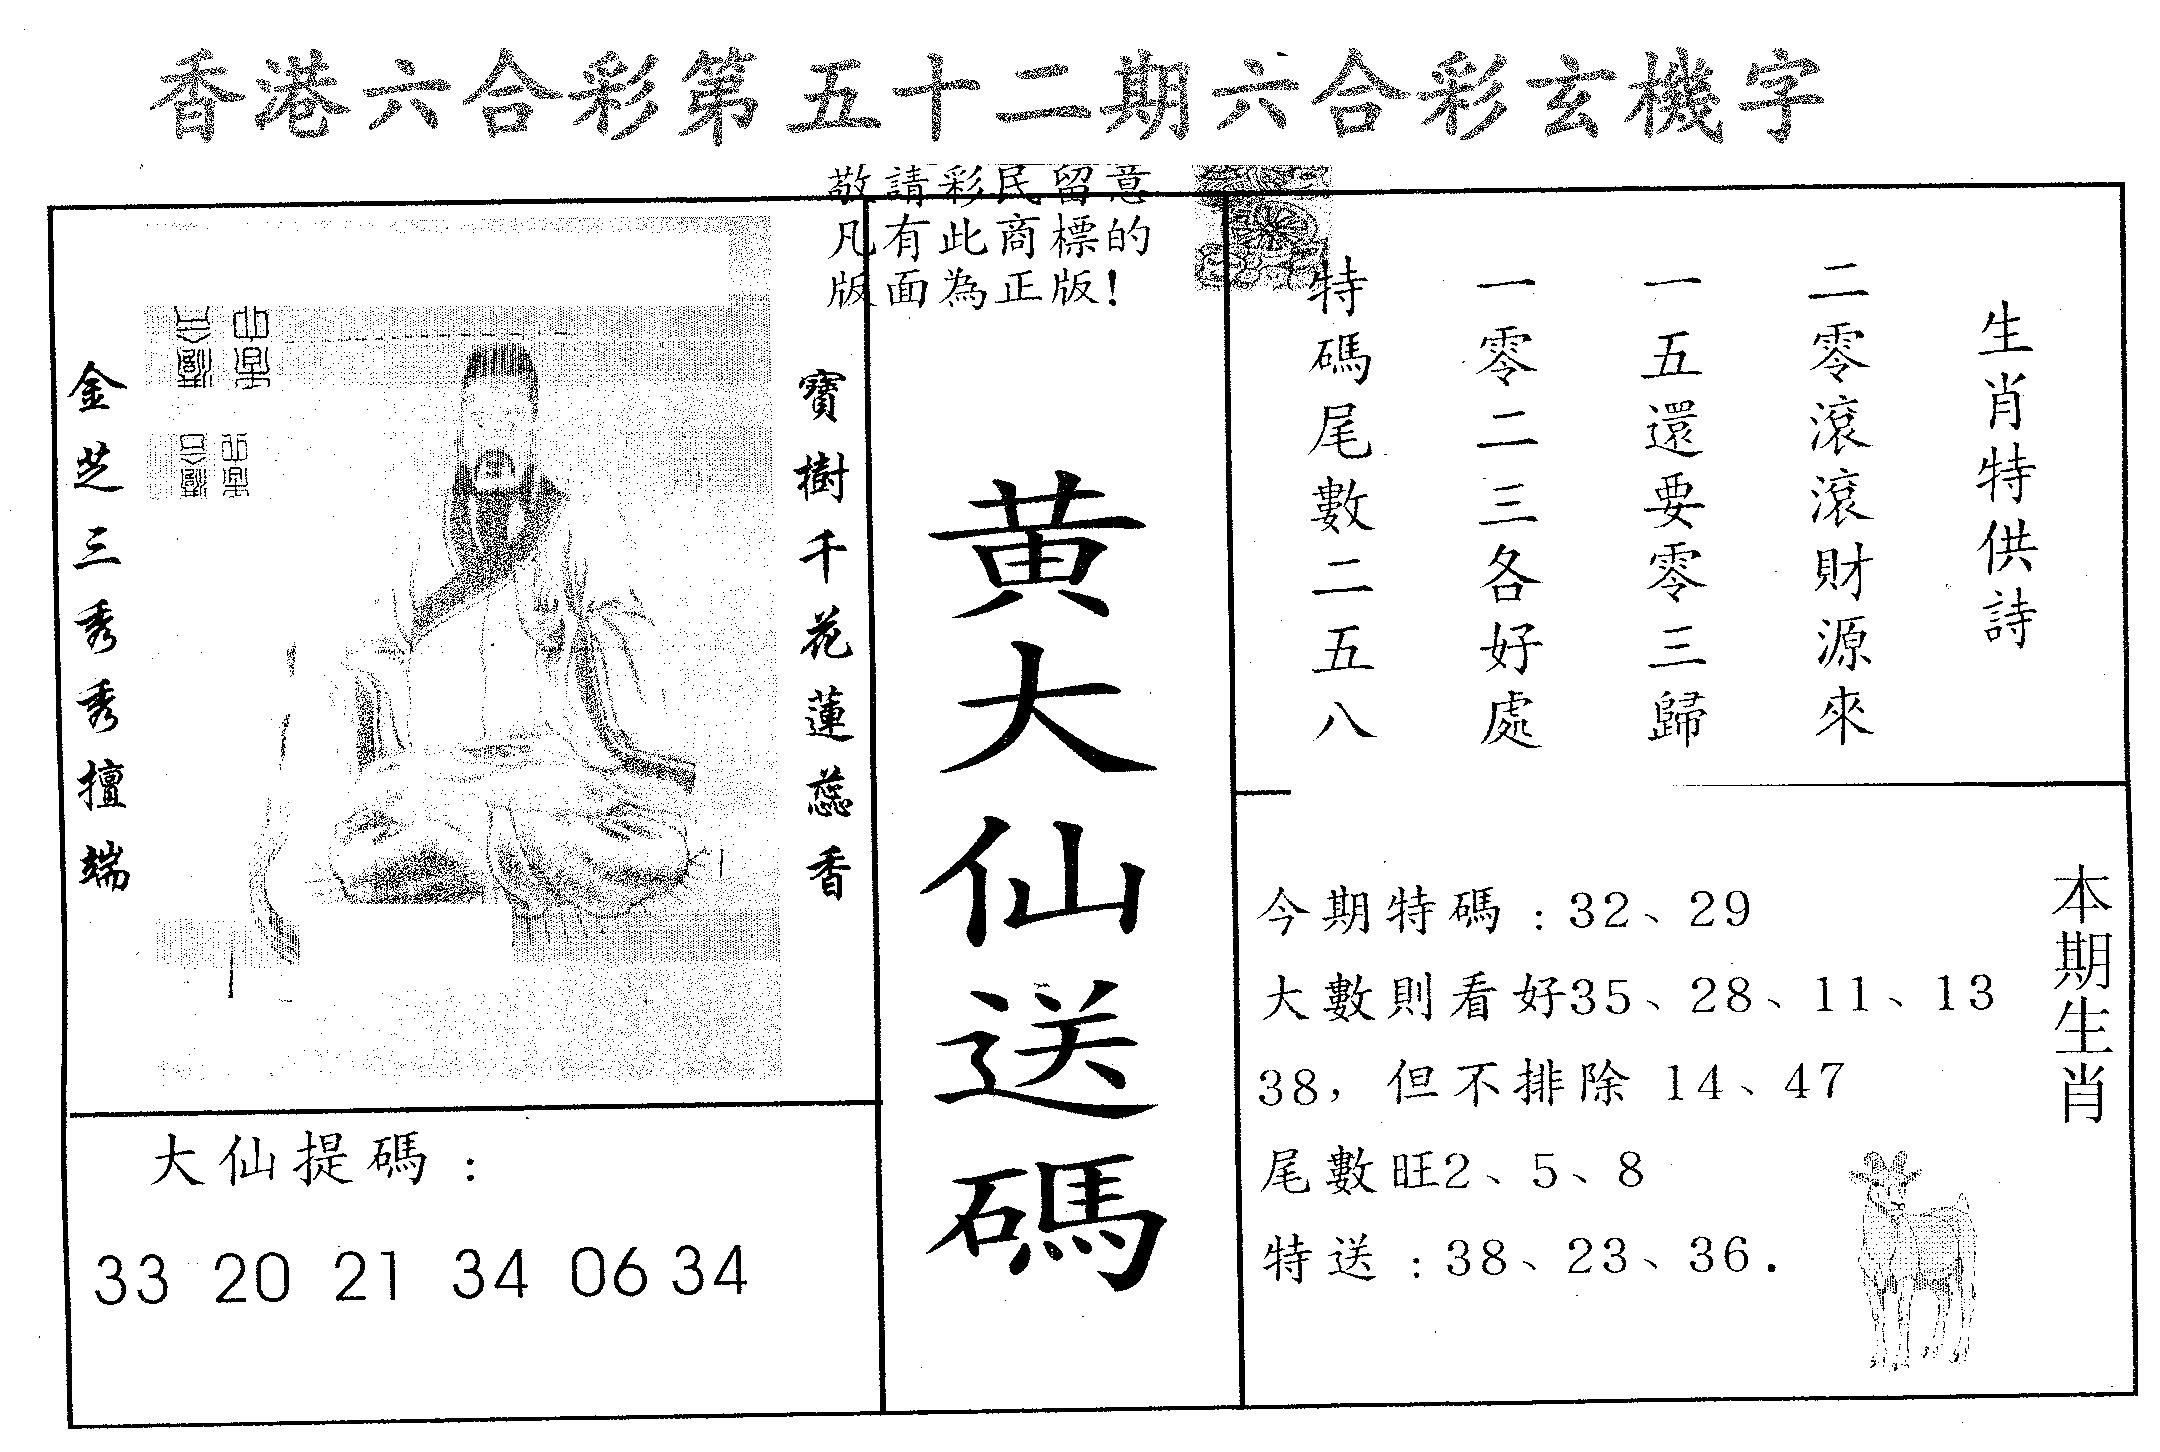 香港六合彩第五十二期六合彩玄機字
敬請彩民留意
凡有此商標的
版面為正版!
生肖特供詩
二零滾滾財源來
一五還要零三歸
一零二三各好處
特碼尾數二五八
黃大仙送碼
寶樹千花蓮蕊香
金芝三秀秀擅端
大仙提碼:
33 20 21 34 06 34
本期生肖
今期特碼:32、29
大數則看好35、28、11、13
38，但不排除 14、47
尾數旺2、5、8
特送:38、23、36.